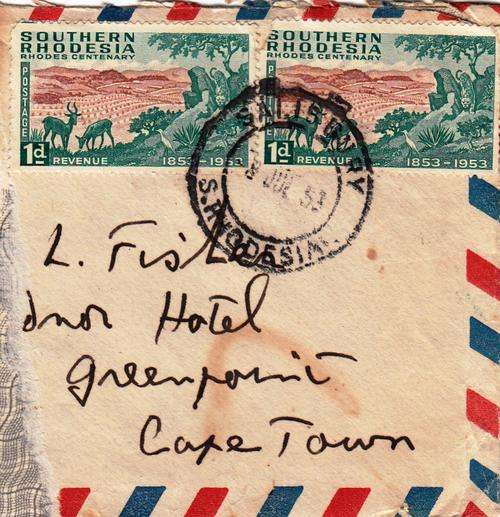 SOUTHERN
RHODESIA
RHODES CENTENARY
POSTAGE
1d REVENUE 1853-1953
SOUTHERN
RHODESIA
RHODES CENTENARY
1d REVENUE 1853-1953
SALISBURY
53
S. RHODESIA
L.
Hotel
Greenpoint
Cape Town